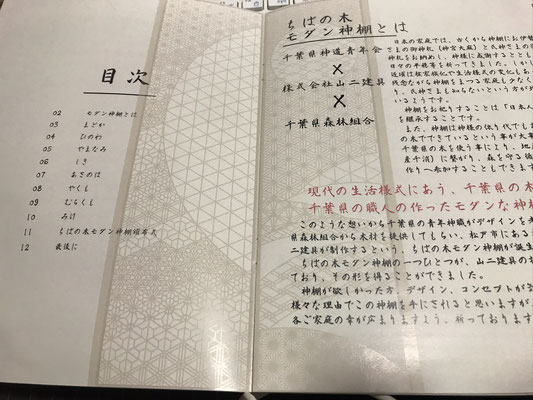 目次
02 モダン神棚とは
03 まどか
04 ひのわ
05 やまなみ
06 しき
07 あさのは
08 やくも
09 むらくも
10 みけ
11 ちばの木モダン神棚頒布式
12 最後に
ちばの木
モダン神棚とは
千葉県神道青年会
×
株式会社山二建具
×
千葉県森林組合
日本の家庭では、古くから神棚にお伊勢
さまの御神札(神宮大麻)と氏神さまの
神札をお納めし、神様に感謝するととも
日々の平穏等を祈ってきました。しかし
近頃は核家族化や生活様式の変化もあ
残念ながら神棚をまつる家庭も少なく
り、氏神さまも知らないという方が
いるようです。
神棚をお祀りすることは「日本人
を継承することです。
また、神棚は神様の依り代でも
の木でできているという事が大事
千葉県の木を使う事により、地
産千消)に繋がり、森を守る循
作りへ参加することもできます
現代の生活様式にあう、千葉県の木
千葉県の職人の作ったモダンな神棚
このような想いから千葉県の青年神職がデザインを
県森林組合から木材を提供してもらい、松戸市にある
二建具が制作するという、ちばの木モダン神棚が誕生
ちばの木モダン神棚の一つひとつが、山二建具の
ており、その形を得ることができました。
神棚が欲しかった方、デザイン、コンセプトが
様々な理由でこの神棚を手にされると思いますが、
各ご家庭の幸が広まりますよう、祈っております